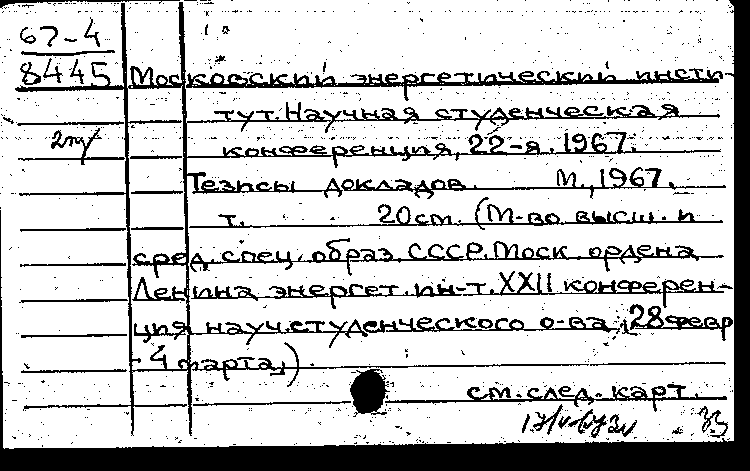 67-4
8445
Московский энергетический инсти-
тут. Научная студенческая
2
конференция, 22-я. 1967.
Тезисы докладов. М., 1967.
т. 20см. (М-во высш. и
сред. спец. образ. СССР. Моск ордена
Ленина энергет. ин-т. XXII конферен-
ция науч. студенческого о-ва, 28 февр
- 4 марта,).
см. след. карт.